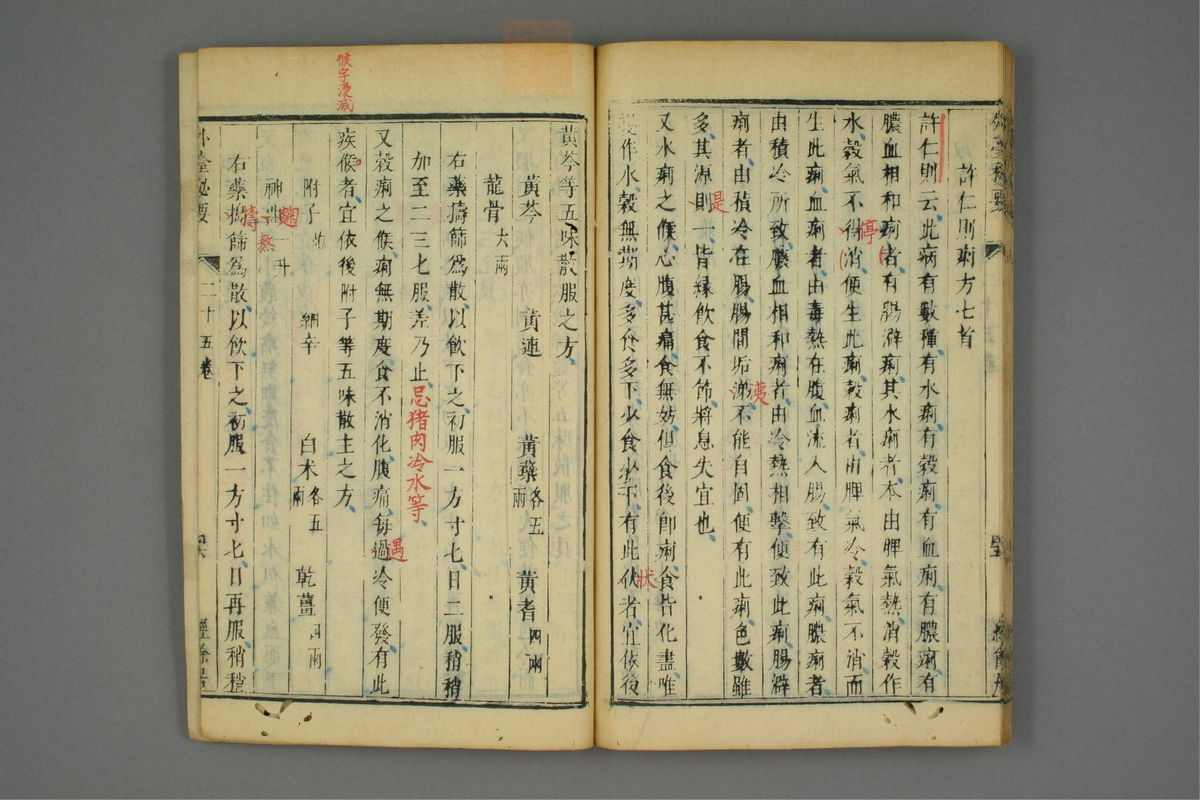 許仁則痢方七首
許仁則云此病有數種有水痢有穀痢有血痢有膿痢有
膿血相和痢者有腸澼痢其水痢者本由脾氣熱消穀作
水穀氣不得消便生此痢穀痢者由脾氣冷穀氣不消而
停
生此痢血痢者由毒熱在腹血流入腸致有此痢膿痢者
由積冷所致膿血相和痢者由冷熱相擊便致此痢腸澼
痢者由積冷在腸腸間垢澼不能自固便有此痢色數雖
洟
多其源則一皆緣飲食不節將息失宜也
是
又水痢之候心腹甚痛食無妨但食後即痢食皆化盡唯
變作水穀無期度多食多下少食少下有此伏者宜依後
狀
黃芩等五味散服之方
黃芩 黃連 黃蘗各五兩 黃耆四兩
龍骨六兩
右藥擣篩爲散以飲下之初服一方寸匕日二服稍稍
加至二三匕服差乃止忌猪肉冷水等
又穀痢之候痢無期度食不消化腹痛每過冷便發有此
遇
候字漫滅
疾候者宜依後附子等五味散主之方
附子炮 細辛 白朮各五兩 乾薑四兩
神麯一升
麹
熬
右藥擣篩爲散以飲下之初服一方寸匕日再服稍稍
擣
外臺秘要
二十五卷
外臺秘要